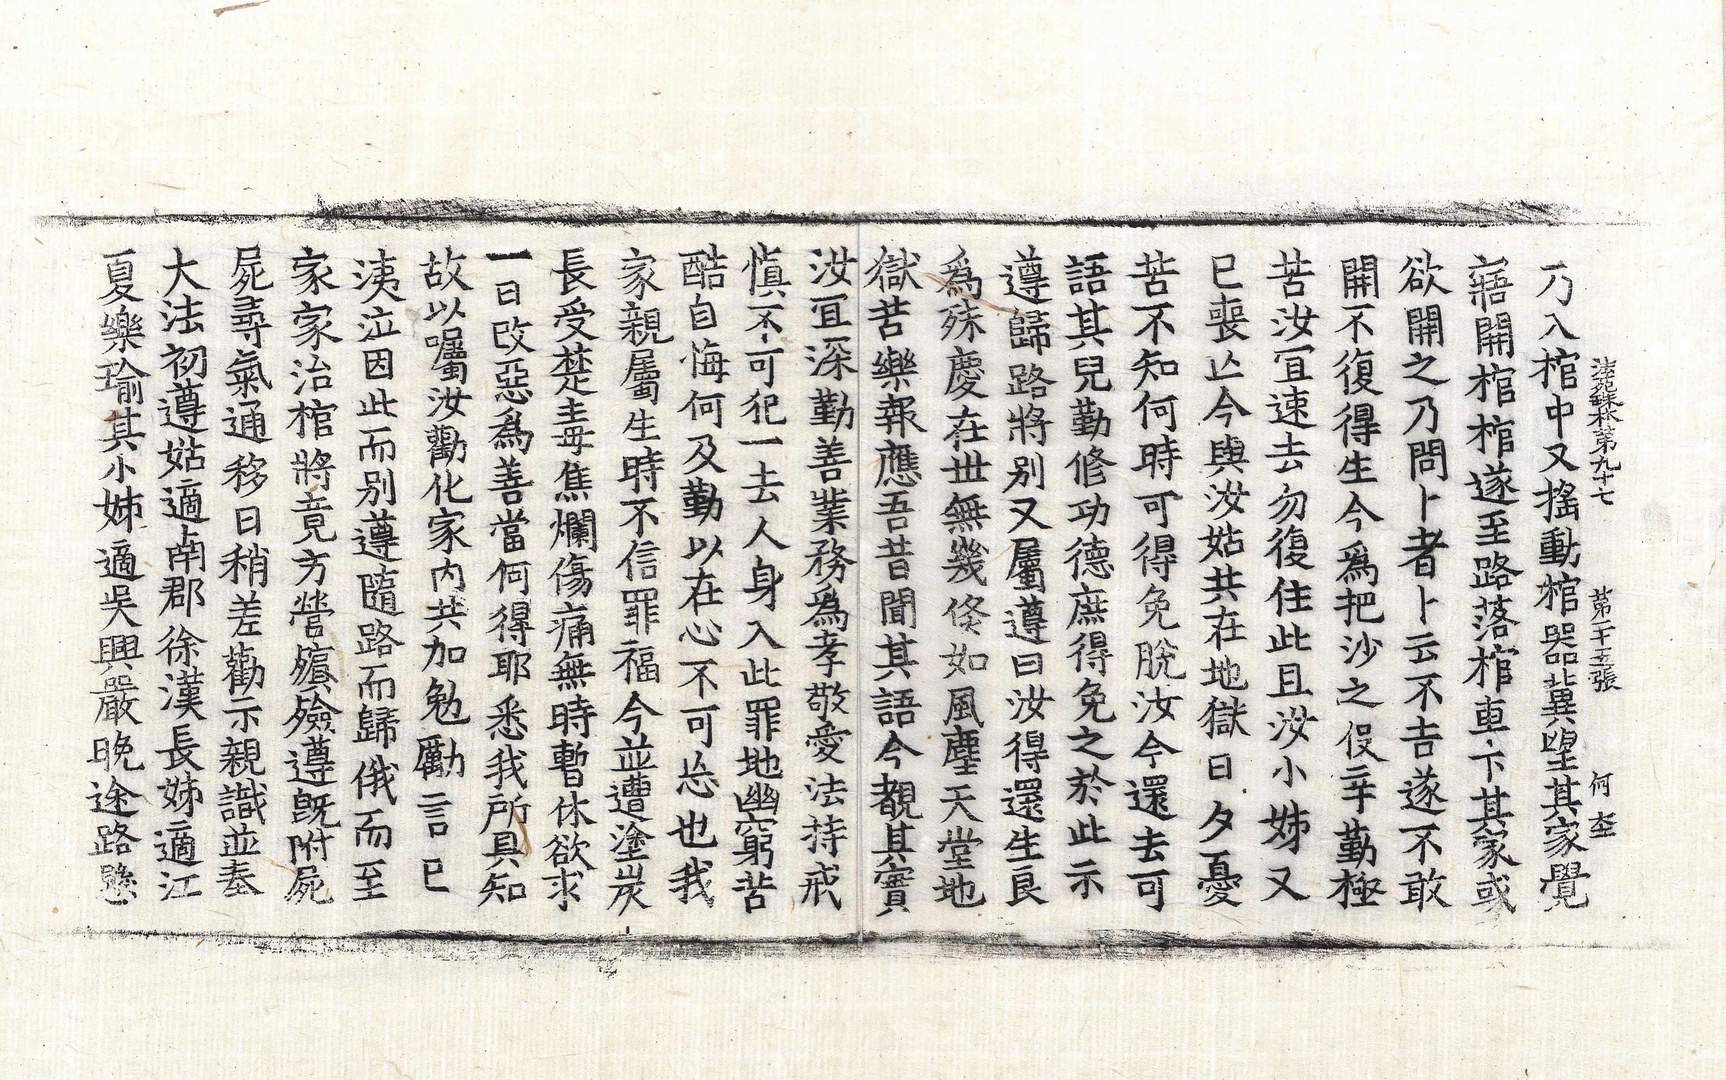 法苑珠林第九十七 第二十五張 何奎
乃入棺中又搖動棺器冀望其家覺
寤開棺棺遂至路落棺車下其家或
欲開之乃問卜者卜云不吉遂不敢
開不復得生今爲把沙之役辛勤極
苦汝冝速去勿復住此且汝小姊又
已喪亡今與汝姑共在地獄日夕憂
苦不知何時可得免脫汝今還去可
語其兒勤修功德庶得免之於此示
遵歸路將別又屬遵曰汝得還生良
爲殊慶在世無幾倏如風塵天堂地
獄苦樂報應吾昔聞其語今覩其實
汝冝深勤善業務爲孝敬愛法持戒
慎不可犯一去人身入此罪地幽窮苦
酷自悔何及勤以在心不可忽也我
家親屬生時不信罪福今並遭塗炭
長受楚毒焦爛傷痛無時暫休欲求
一日改惡爲善當何得耶悉我所具知
故以囑汝勸化家內共加勉勵言已
洟泣因此而別遵隨路而歸俄而至
家家治棺將竟方營殯殮遵旣附屍
屍尋氣通移日稍差勸示親識並奉
大法初遵姑適南郡徐漢長姊適江
夏樂瑜其小姊適吳興嚴晚途路懸